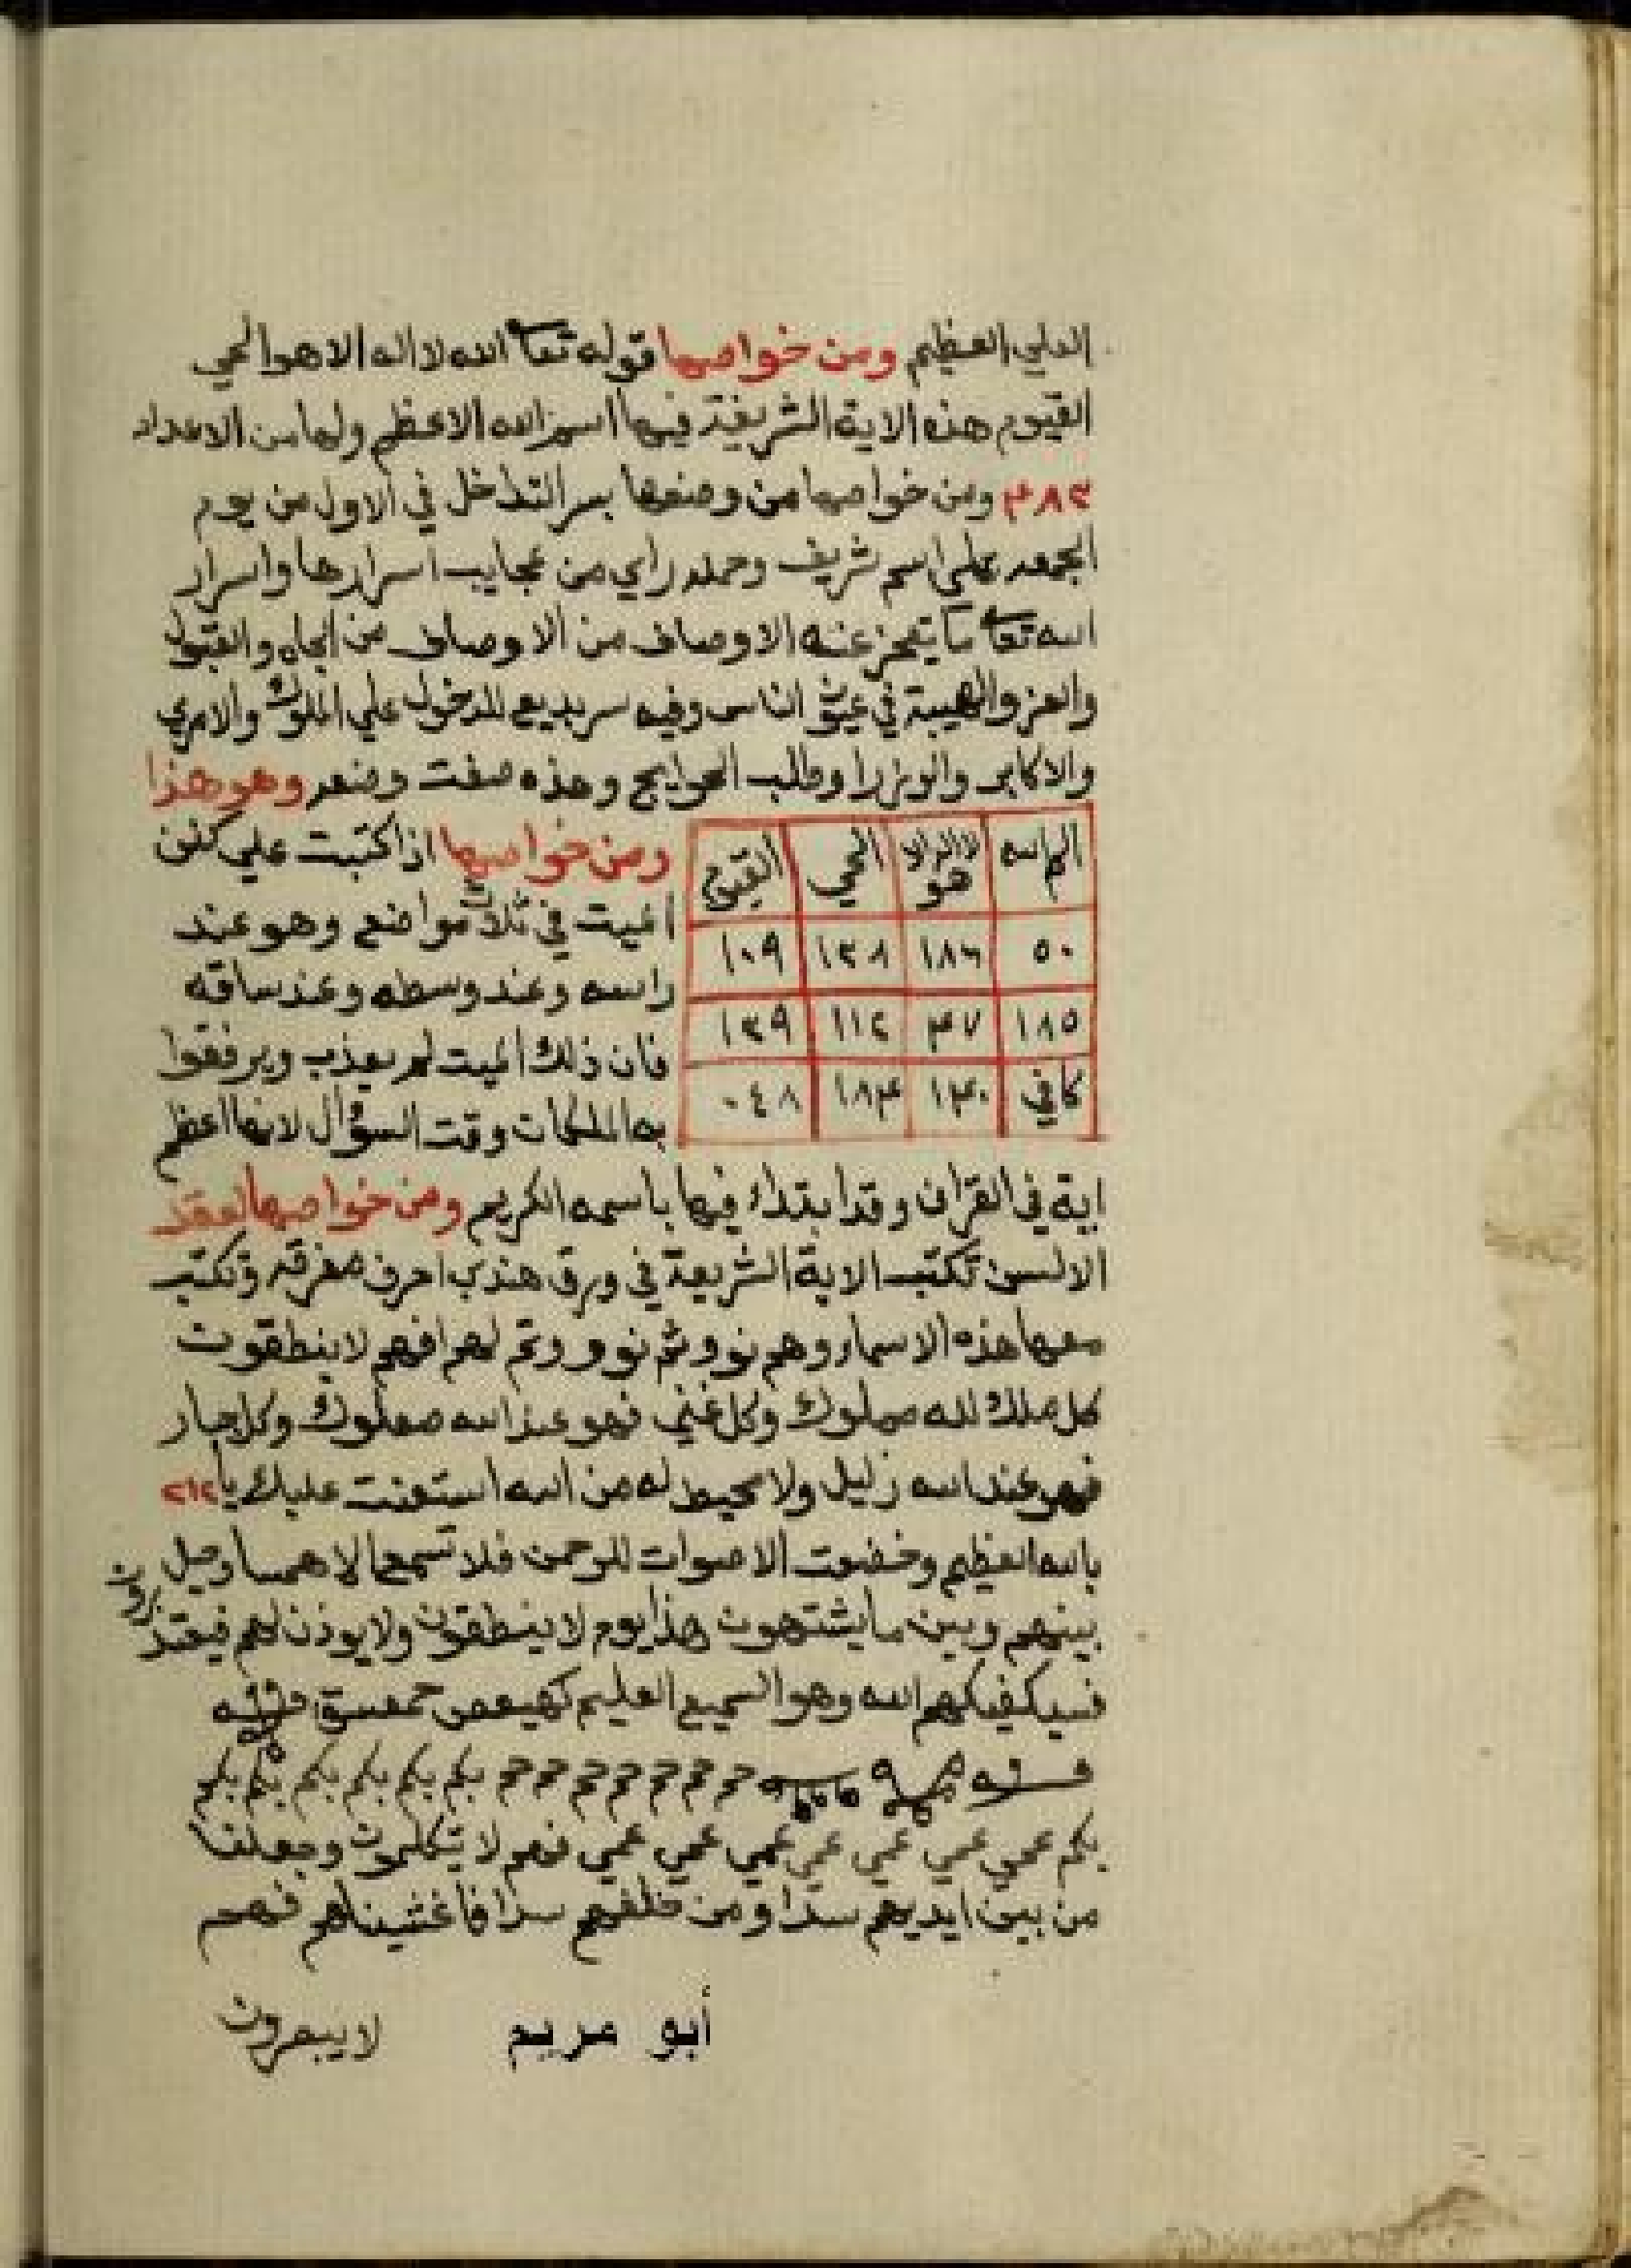 العلي العظيم ومن خواصها قوله تعا الله لا اله الا هو الحي
القيوم هذه الاية الشريفة فيها اسم الله الاعظم ولها من الاعداد
٤٨٣ ومن خواصها من وضعها بسر التداخل في الاول من يوم
الجمعه علي اسم شريف وحمله راي من عجايب اسرارها واسرار
الله تعا ما يعجز عنه الاوصاف من الاوصاف من الجاه والقبول
والعز والهيبة في عيون الناس وفيه سر بديع للدخول علي الملوك والامري
والاكابر والوزرا وطلب الحوايج وهذه صفت وضعه وهو هذا
الم الله لا اله الا هو الحي القيوم
٥٠ ١٨٦ ١٣٨ ١٠٩
١٨٥ ٤٧ ١١٢ ١٣٩
كافي ١٤٠ ١٨٤ ٠٤٨
ومن خواصها اذا كتبت علي كفن
الميت في ثلاث مواضع وهو عند
راسه وعند وسطه وعند ساقه
فان ذلك الميت لم يعذب ويرفقوا
به الملكان وقت السؤال لانها اعظم
اية في القران وقد ابتداء فيها باسمه الكريم ومن خواصها لعقد
الالسن تكتب الاية الشريفة في ورق هندي احرف مفرقه وتكتب
معها هذه الاسما وهم نوو ثم نوو وتم لهم افهم لا ينطقون
كل ملك لله مملوك وكل غني فهو عند الله صعلوك وكل جبار
فهو عند الله زليل ولا محيط له من الله استعنت عليك يا ٢١٢
بالله العظيم وخضعت الاصوات للرحمن فلا تسمع الا همسا وحيل
بينهم وبين ما يشتهون هذا يوم لا ينطقون ولا يوذن لهم فيعتذرون
فسيكفيكهم الله وهو السميع العليم كهيعص حمعسق
بكم بكم بكم بكم بكم بكم
بكم عمي عمي عمي عمي عمي عمي عمي فهم لا يتكلمون وجعلنا
من بين ايديهم سدا ومن خلفهم سدا فاغشيناهم فهم
لا يبصرون
أبو مريم